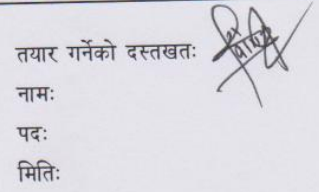 तयार गर्नेको दस्तखतः
नामः
पदः
मितिः